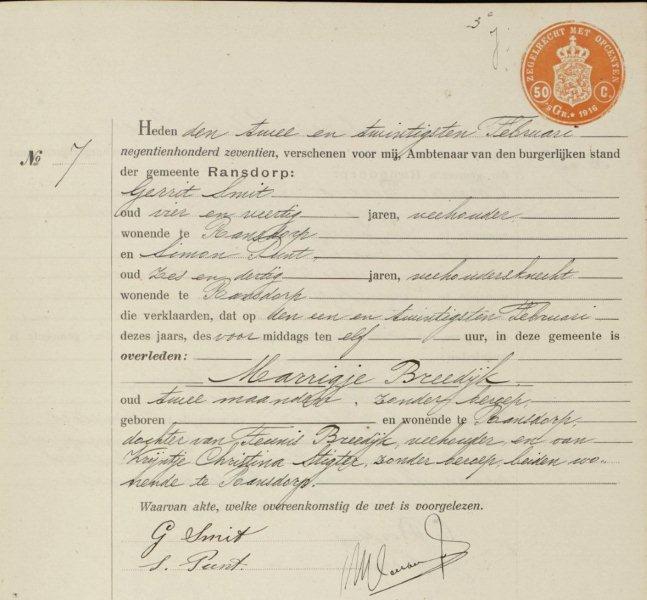 3e
ZEGELRECHT MET OPCENTEN
50 C.
'sGR. * 1916
No 7
Heden den twee en twintigsten Februari
negentienhonderd zeventien, verschenen voor mij, Ambtenaar van den burgerlijken stand
der gemeente Ransdorp:
Gerrit Smit
oud vier en veertig jaren, veehouder
wonende te Ransdorp
en Simon Punt
oud zes en dertig jaren, veehoudersknecht
wonende te Ransdorp
die verklaarden, dat op den een en twintigsten Februari
dezes jaars, des voor middags ten elf uur, in deze gemeente is
overleden:
Marrigje Breedijk.
oud twee maanden, zonder beroep,
geboren en wonende te Ransdorp,
dochter van Teunis Breedijk, veehouder en van
Krijntje Christina Stigter, zonder beroep, beiden wo-
nende te Ransdorp.
Waarvan akte, welke overeenkomstig de wet is voorgelezen.
G Smit
S. Punt.